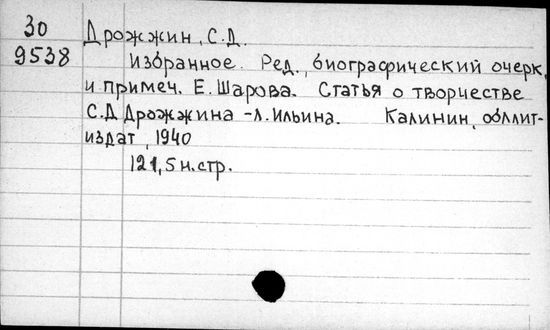 30
9538
Дрожжин, С.Д.
Избранное. Ред., биографический очерк,
и примеч. Е. Шарова. Статья о творчестве
С.Д Дрожжина - Л. Ильина. Калинин, обллит-
издат, 1940
121, 5 н. стр.